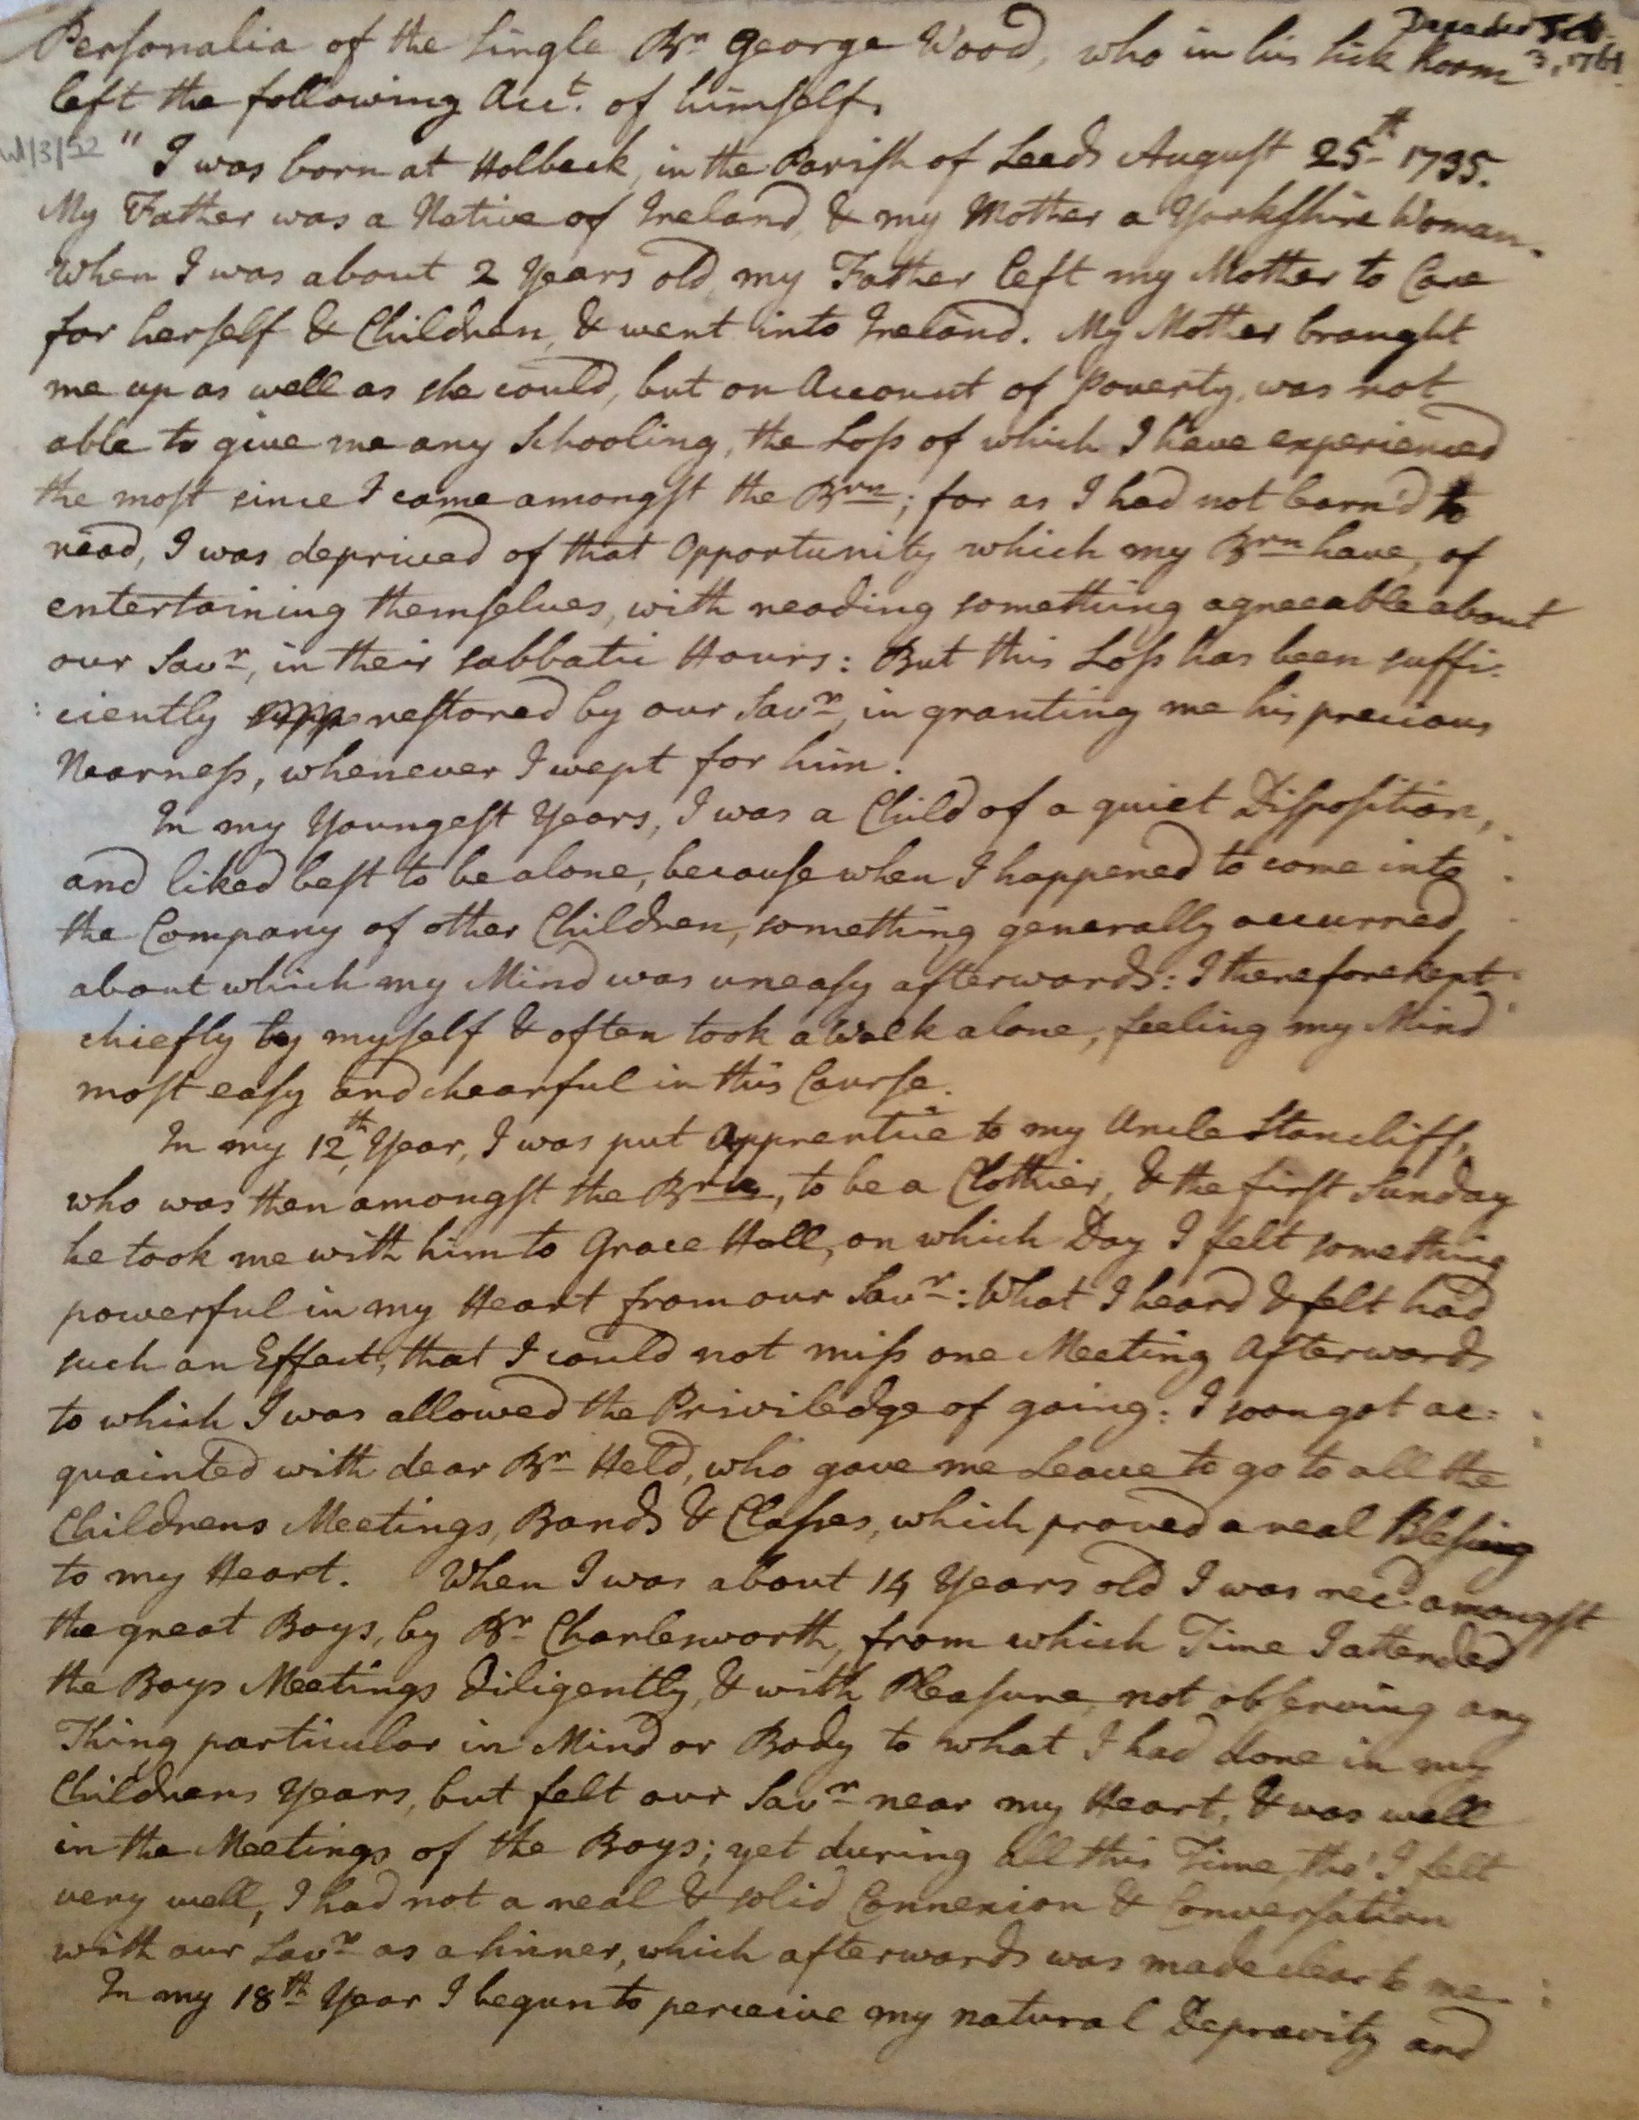 Personalia of the Single Br. George Wood, who in his sick Room
Departed Feb.
3, 1761
left the following Acct. of himself.
"I was born at Holbeck, in the Parish of Leeds August 25th 1735.
My Father was a Native of Ireland, & my Mother a Yorkshire Woman.
When I was about 2 Years old my Father left my Mother to Care
for herself & Children, & went into Ireland. My Mother brought
me up as well as she could, but on Account of Poverty, was not
able to give me any Schooling, the Loss of which I have experienced
the most since I came amongst the Brn; for as I had not learn'd to
read, I was deprived of that Opportunity which my Brn have, of
entertaining themselves, with reading something agreeable about
our Savr, in their sabbatic Hours: But this Loss has been suffi:
:ciently restored by our Savr, in granting me his precious
Nearness, whenever I wept for him.
In my Youngest Years, I was a Child of a quiet Disposition,
and liked best to be alone, because when I happened to come into
the Company of other Children, something generally occurred
about which my Mind was uneasy afterwards: I therefore kept
chiefly by myself & often took a Walk alone, feeling my Mind
most easy and chearful in this Course.
In my 12th Year, I was put Apprentice to my Uncle Stancliff,
who was then amongst the Brn, to be a Clothier, & the first Sunday
he took me with him to Grace Hall, on which Day I felt something
powerful in my Heart from our Savr: What I heard & felt had
such an Effect, that I could not miss one Meeting Afterwards
to which I was allowed the Priviledge of going: I soon got ac:
quainted with dear Br Held, who gave me Leave to go to all the
Childrens Meetings, Bands & Classes, which proved a real Blessing
to my Heart. When I was about 14 Years old I was recd amongst
the great Boys, by Br Charlesworth, from which Time I attended
the Boys Meetings Diligently, & with Pleasure, not observing any
Thing particular in Mind or Body to what I had done in my
Childrens Years, but felt our Savr near my Heart, & was well
in the Meetings of the Boys; yet during all this Time, tho' I felt
very well, I had not a real & solid Connexion & Conversation
with our Savr as a Sinner, which afterwards was made clear to me.
In my 18th Year I begun to perceive my natural Depravity and